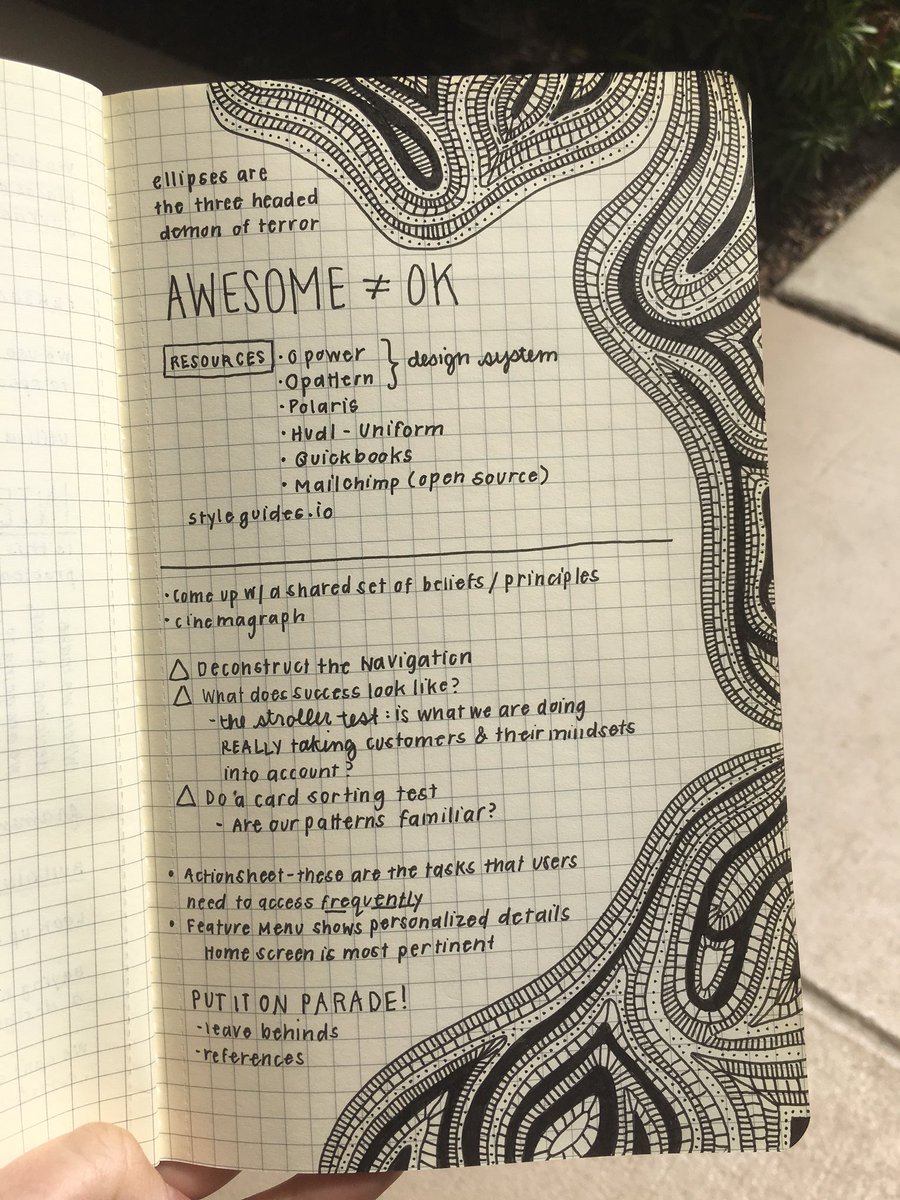 ellipses are
the three headed
demon of terror
AWESOME ≠ OK
RESOURCES · Opower } design system
· Opattern
· Polaris
· Hudl - Uniform
· Quickbooks
· Mailchimp (open source)
styleguides.io
· Come up w/ a shared set of beliefs / principles
· cinemagraph
△ Deconstruct the Navigation
△ What does success look like?
- the stroller test : is what we are doing
REALLY taking customers & their mindsets
into account?
△ Do a card sorting test
- Are our patterns familiar?
• Actionsheet - these are the tasks that users
need to access frequently
• Feature Menu shows personalized details
Home screen is most pertinent
PUT IT ON PARADE!
- leave behinds
- references